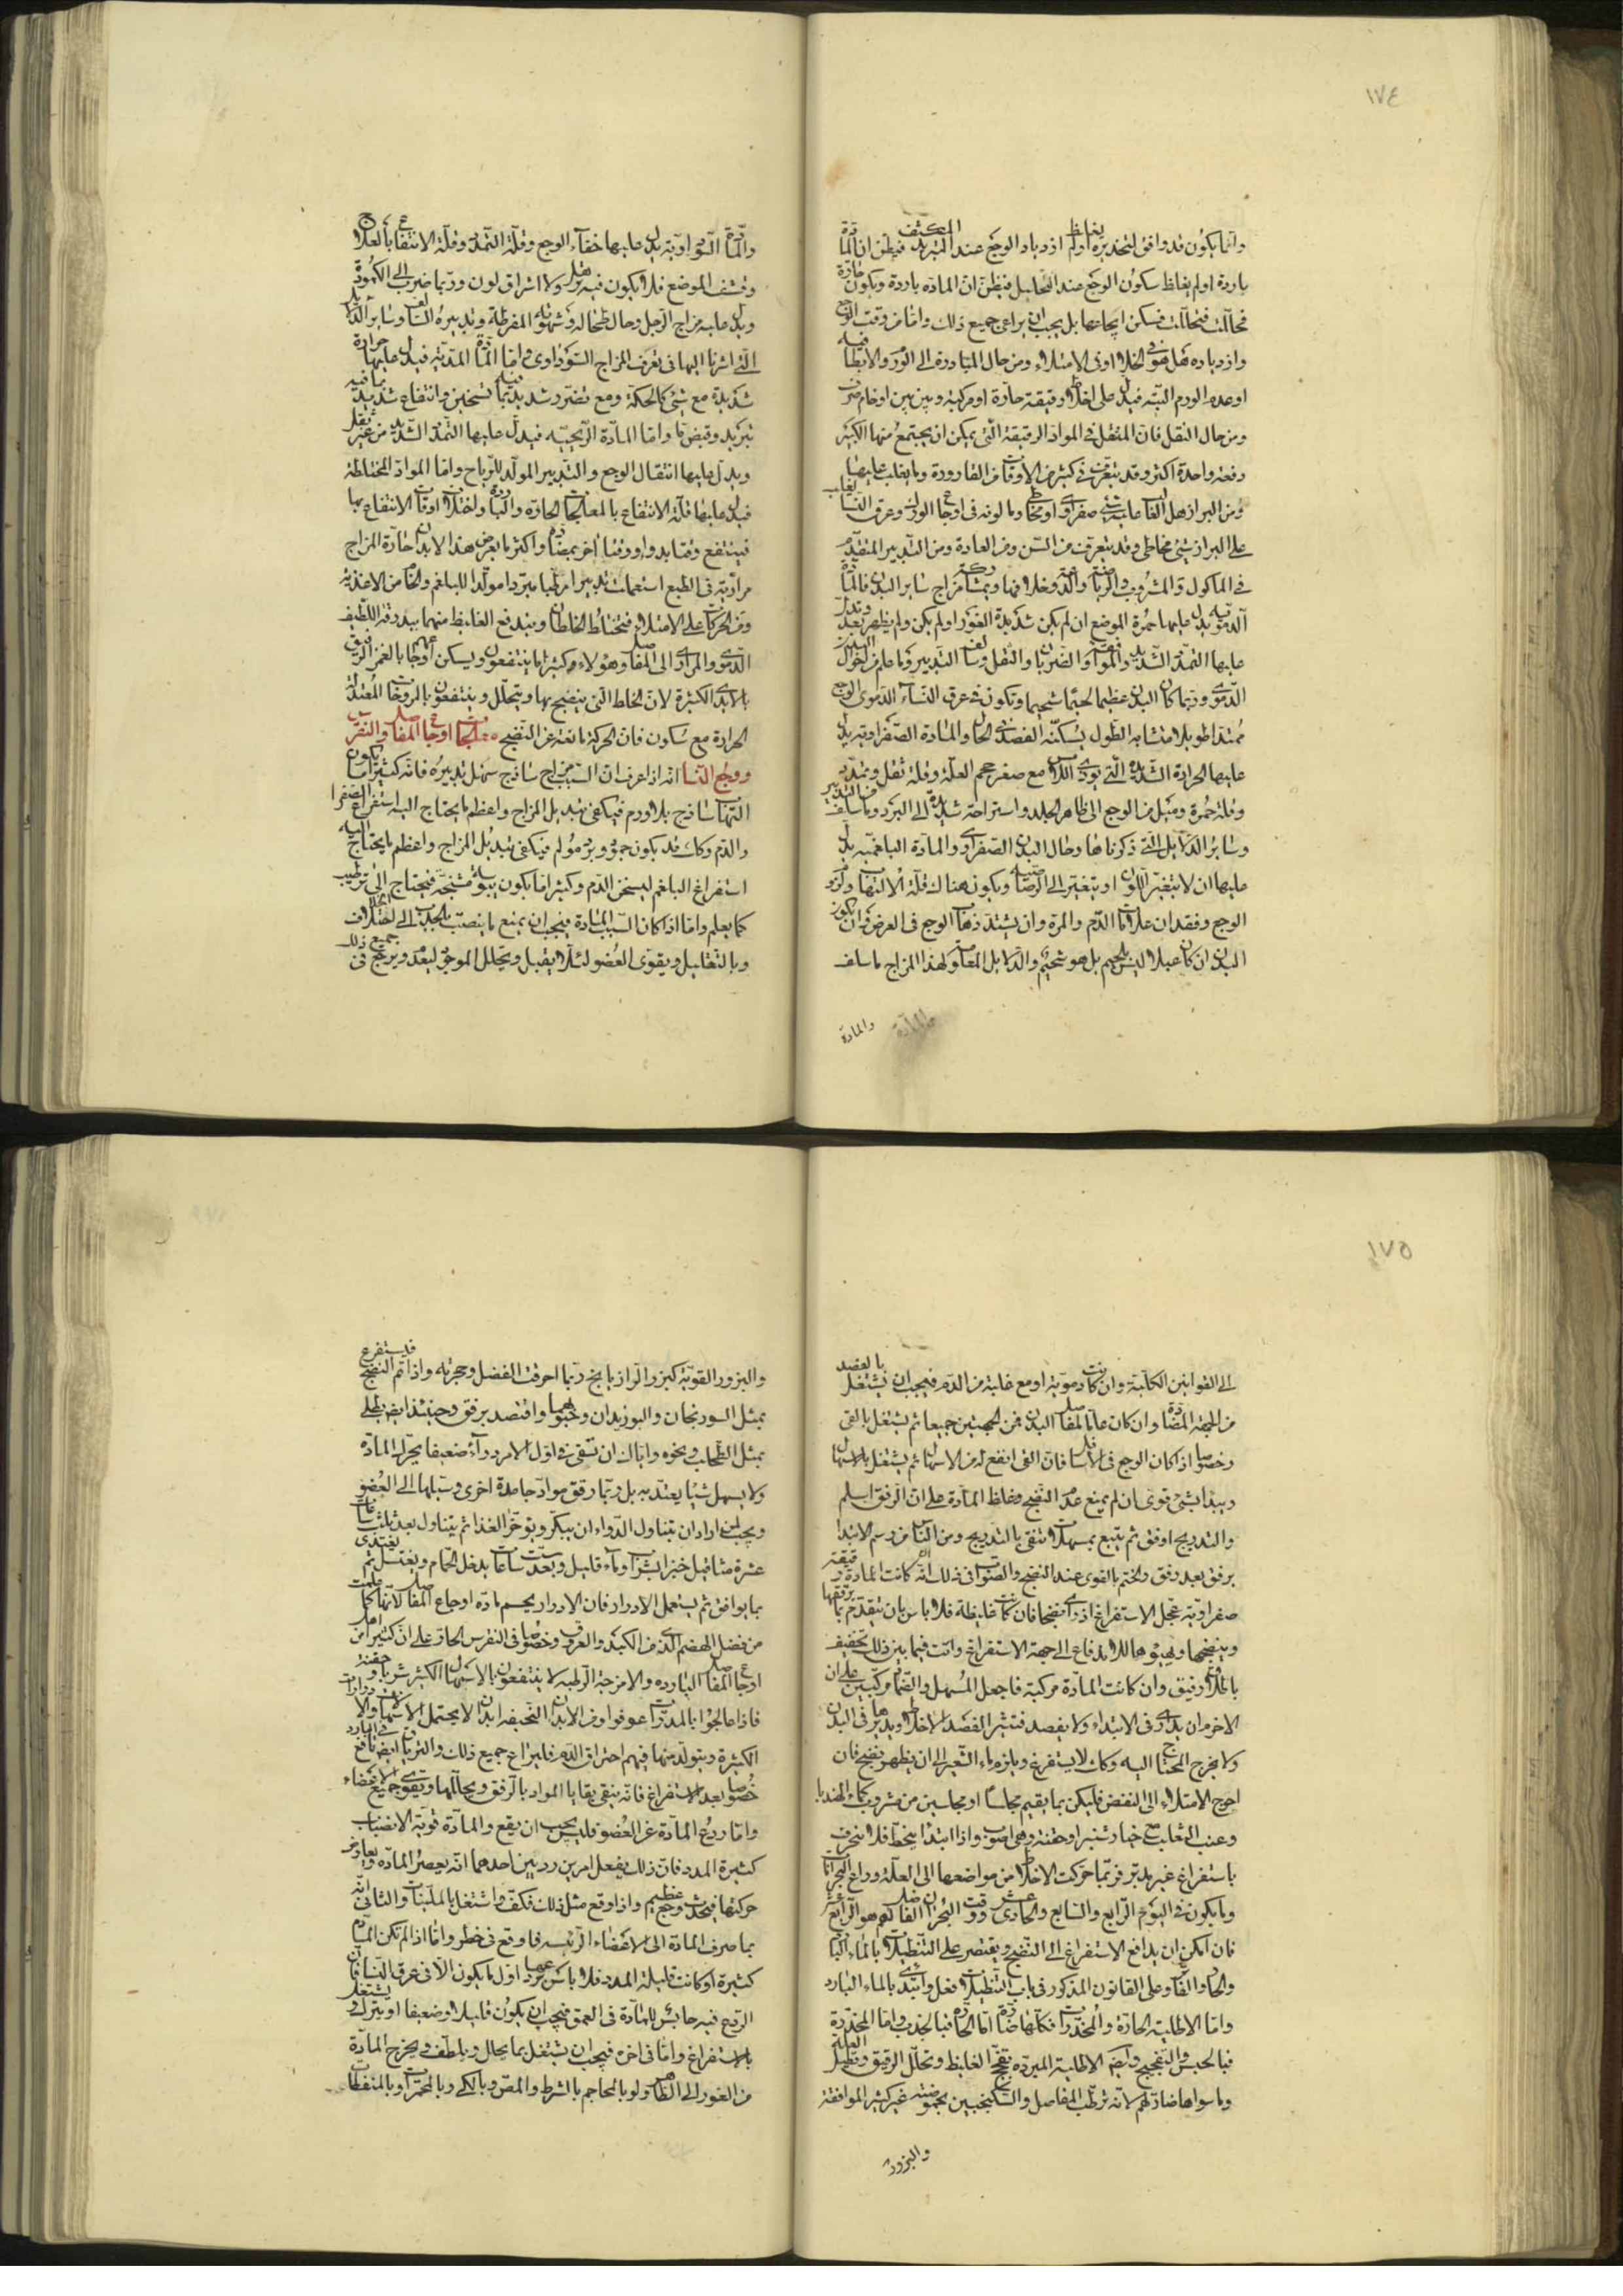 ١٧٤
وانما يكون قد وافق لتخديره اولم يغلظ ازدياد الوجع عند التبريد المكثف فيظن ان المادة
باردة اولم يغلظ سكون الوجع عند التحليل فيظن ان المادة باردة ويكون حارة
فحللت فتحللت فسكن ايجاعها بل يجب ان يراعى جميع ذلك واما من وقت الوجع
وازدياده هل هو فى الخلاء او فى الامتلاء ومن حال المبادرة الى الورم والابطاء فيه
او عدم الورم البتة فيدل على اخلاط رقيقة حارة او مركبة وبين بين او خام صرف
ومن حال الثقل فان الثقل فى المواد الرقيقة التى يمكن ان يجتمع منها الكثير
دفعة واحدة اكثر وقد يتعرف فى كثير من الاوقات من القارورة وما يغلب عليها
ومن البراز هل الغالب عليه شئ صفراوى او مخاطى وما لونه فى اوجاع الورك وعرق النسا يغلب
على البراز شئ مخاطى وقد يتعرف من السن ومن العادة ومن التدبير المتقدم
فى الماكول والمشروب والرياضة والدعة وخلافها وبمشاركة مزاج سائر البدن فالمادة
الدموية يدل عليها حمرة الموضع ان لم يكن شديدة الغور او لم يكن ولم يظهر بعد وتدل
عليها التمدد الشديد والمدافعة والضربان والثقل وسالف التدبير وما علم من احوال البدن
الدموى وربما كان البدن عظيما لحيما شحيما وتكون فى عرق النساء الدموى الوجع
ممتدا طويلا متشابه الطول يسكنه الفصد فى الحال والمادة الصفراوية يدل
عليها الحرارة الشديدة التى يؤذى اللامس مع صغر حجم العلة وقلة ثقل وتمدد
وقلة حمرة وميل من الوجع الى ظاهر الجلد واستراحة شديدة الى البرد وما سلف من التدبير
وسائر الدلائل التى ذكرناها وحال البدن الصفراوى والمادة البلغمية يدل
عليها ان لا يتغير اللون او يتغير الى الرصاصية ويكون هناك قلة الالتهاب ولزوم
الوجع وفقدان علامات الدم والمرة وان يشتد ذهاب الوجع فى العرض وان يكون
البدن ان كان عبلا ليس بلحيم بل هو شحيم والدلائل المعلومة لهذا المزاج ما سلف
والمادة
والمادة السوداوية يدل عليها خفاء الوجع وقلة التمدد وقلة الانتفاع بالعلاج
وقشف الموضع فلا يكون فيه ترهل ولا اشراق لون وربما ضرب الى الكمودة
ويدل عليه مزاج الرجل وحال طحاله وشهوته المفرطة وتدبيره السالف وسائر الدلائل
التى اشرنا اليها فى تعرف المزاج السوداوى واما المادة المدية فيدل عليها حرارة
شديدة مع شئ كالحكة ومع تضرر شديد بما فيه تسخين وانتفاع شديد بما فيه
تبريد وقبض ما واما المادة الريحية فيدل عليها التمدد الشديد من غير ثقل
ويدل عليها انتقال الوجع والتدبير المولد للرياح واما المواد المختلطة
فيدل عليها قلة الانتفاع بالمعالجات الحارة والباردة واختلاف اوقات الانتفاع بها
فينتفع وقتا بدواء ووقتا اخر بمضاده واكثر ما يعرض هذا لابدان حارة المزاج
مرارية فى الطبع استعملت تدبيرا مرطبا مبردا مولدا للبلغم والخام من الاغذية
ومن الحركات على الامتلاء فتختلط الخلطان ويندفع الغليظ منهما ببدرقة اللطيف
الدموى والمرارى الى المفاصل وهؤلاء كثيرا ما ينتفعون ويسكن اوجاعهم بالغمز الرقيق
بالايدى الكثيرة لان الخلط النئ ينضج بها ويتحلل وينتفعون بالمروخات المعتدلة
الحرارة مع سكون فان الحركة مانعة عن النضج معالجات اوجاع المفاصل والنقرس
ووجع النسا انه اذا عرف ان السبب مزاج ساذج سهل تدبيره فانه كثيرا ما يكون
التهاب ساذج بلا ورم فيكفى تبديل المزاج واعظم ما يحتاج اليه استفراغ الصفرا
والدم وكذلك قد يكون جمود وبرد مولم فيكفى تبديل المزاج واعظم ما يحتاج اليه
استفراغ البلغم ليسخن الدم وكثيرا ما يكون يبوسة مشنجة فيحتاج الى ترطيب
كما يعلم واما اذا كان السبب المادة فيجب ان يمنع ما ينصب بالجذب الى الخلاف
وبالتقليل ويقوى العضو لئلا يقبل ويحلل الموجود ليعدم ويرجع فى جميع ذلك
١٧٥
الى القوانين الكلية وان كانت دموية او مع غلبة من الدم فيجب ان يشتغل بالفصد
من الجهة المضادة وان كان عاما لمفاصل البدن فمن الجهتين جميعا ثم يشتغل بالقى
وخصوصا اذا كان الوجع فى الاسافل فان القى انفع له من الاسهال ثم يشتغل بالاسهال
ويبدا بشئ قوى ان لم يمنع عدم النضج وغلظ المادة على ان الرفق اسلم
والتدريج اوفق ثم يتبع بمسهلات تنقى بالتدريج ومن الناس من رسم الابتدا
برفق بعد رفق والختم بالقوى عند النضج والصواب فى ذلك انه ان كانت المادة رقيقة
صفراوية عجل الاستفراغ اذ راى نضجا فان كانت غليظة فلا باس بان يتقدم بما يرققها
وينضجها ويهيئها للاندفاع الى جهة الاستفراغ وانت فيما بين ذلك تخفيف
باسهال رقيق وان كانت المادة مركبة فاجعل المسهل والضماد مركبين على ان
الاحزم ان يدارى فى الابتداء ولا يفصد فتثير الفصد الاخلاط ويديرها فى البدن
ولا يخرج المحتاج اليه وكذلك لا يستفرغ ويلزم ماء الشعير الى ان يظهر نضج فان
احوج الامتلاء الى النفض فليكن بما يقيم مجلسا او مجلسين من مشروب كماء الهندبا
وعنب الثعلب مع خيار شنبر او حقنة وهى اصوب واذا ابتدا ينحط فلا ينحرف
باستفراغ غير مدبر فربما حركت الاخلاط من مواضعها الى العلة وراع البحرانات
وما يكون فى اليوم الرابع والسابع والحادى عشر ووقت البحران الفاضل لهم هو الرابع عشر
فان امكن ان يدافع الاستفراغ الى النضج ويقتصر على التنطيلات بالماء البارد
والحار والفاتر وعلى القانون المذكور فى باب التنطيلات فعل وابتدئ بالماء البارد
واما الاطلية الحادة والمخدرات فكلها ضارة اما الحادة فبالجذب واما المخدرة
فبالحبس والتفجيج وايضا الاطلية المبردة تفجج الغليظ وتحلل الرقيق وتطيل العلة
وما سواها ضار لهم لانه ترطب المفاصل والسكنجبين بحموضته غير كثير الموافقة
والبزور
والبزور القوية كبزر الرازيانج ربما احرقت الفضل وحجرته واذا تم النضج فليستفرغ
بمثل السورنجان والبوزيدان وحبوبهما واقتصد برفق وحينئذ ايضا يطلى
بمثل الطحلب ونحوه واياك ان تسقى فى اول الامر دواء ضعيفا يحرك المادة
ولا يسهل شيئا يعتد به بل ربما رقق مواد جامدة اخرى وسيلها الى العضو
ويجب لمن اراد ان يتناول الدواء ان يبكر ويؤخر الغذا ثم يتناول بعد ثلث ساعات
عشرة مثاقيل خبز بشراب وماء قليل وبعد ست ساعات يدخل الحمام ويغتسل ثم يغتذى
بما يوافق ثم يستعمل الادرار فان الادرار يحسم مادة اوجاع المفاصل لانها كما علمت
من فضل الهضم الذى فى الكبد والعروق وخصوصا فى النقرس الحار على ان كثيرا من اصحاب
اوجاع المفاصل الباردة والامزجة الرطبة لا ينتفعون بالاسهال الكثير شربا وحقنة
فاذا عالجوا بالمدرات عوفوا ومن الابدان النحيفة ابدان لا يحتمل الاسهال والادرارات
الكثيرة ويتولد منها فيهم احتراق الدم فليراع جميع ذلك والترياق ايضا نافع فى البارد
خصوصا بعد الاستفراغ فانه ينقى بقايا المواد بالرفق ويحللها ويقوى جميع الاعضاء
واما ردع المادة عن العضو فليس يجب ان يقع والمادة قوية الانصباب
كثيرة المدد فان ذلك يفعل امرين رديين احدهما انه يعصر المادة ويعارض
حركتها فيحدث وجع عظيم واذا وقع مثل ذلك فكف واشتغل بالملينات والثانى انه
بما صرف المادة الى الاعضاء الرئيسة فاوقع فى خطر واما اذا لم تكن المادة
كثيرة او كانت قليلة المدد فلا باس بردعها اول ما يكون الا فى عرق النسا فان
الردع فيه حابس للمادة فى العمق فيجب ان يكون قليلا وضعيفا او يترك ويشتغل
بالاستفراغ واما فى اخره فيجب ان يشتغل بما يحلل ويلطف ويخرج المادة
من الغور الى الظاهر ولو بالمحاجم بالشرط والمص وبالكى وبالمحمرات وبالمنفطات